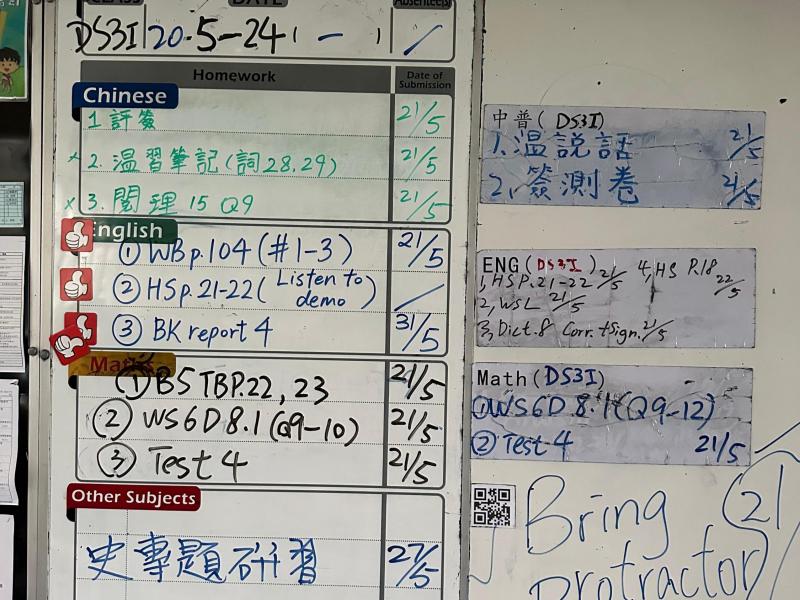 CLASS DATE Absentees
DS3I 20-5-24
Homework Date of Submission
Chinese
1. 評簽 21/5
x 2. 溫習筆記(詞28,29) 21/5
x 3. 閱理15 Q9 21/5
English
① WBp.104(#1-3) 21/5
② HSp.21-22(Listen to demo)
③ BK report 4 31/5
Maths
① BS TBP.22, 23 21/5
② WS6D 8.1(Q9-10) 21/5
③ Test 4 21/5
Other Subjects
史專題研習 27/5
中普(DS3I)
1. 溫說話 21/5
2. 簽測卷 21/5
ENG(DS3I)
1, HSP.21-22 21/5 4, HS P.18 22/5
2, WSL 21/5
3, Dict.8 Corr.+Sign. 21/5
Math(DS3I)
① WS6D 8.1(Q9-12)
② Test 4 21/5
Bring 21
protractor